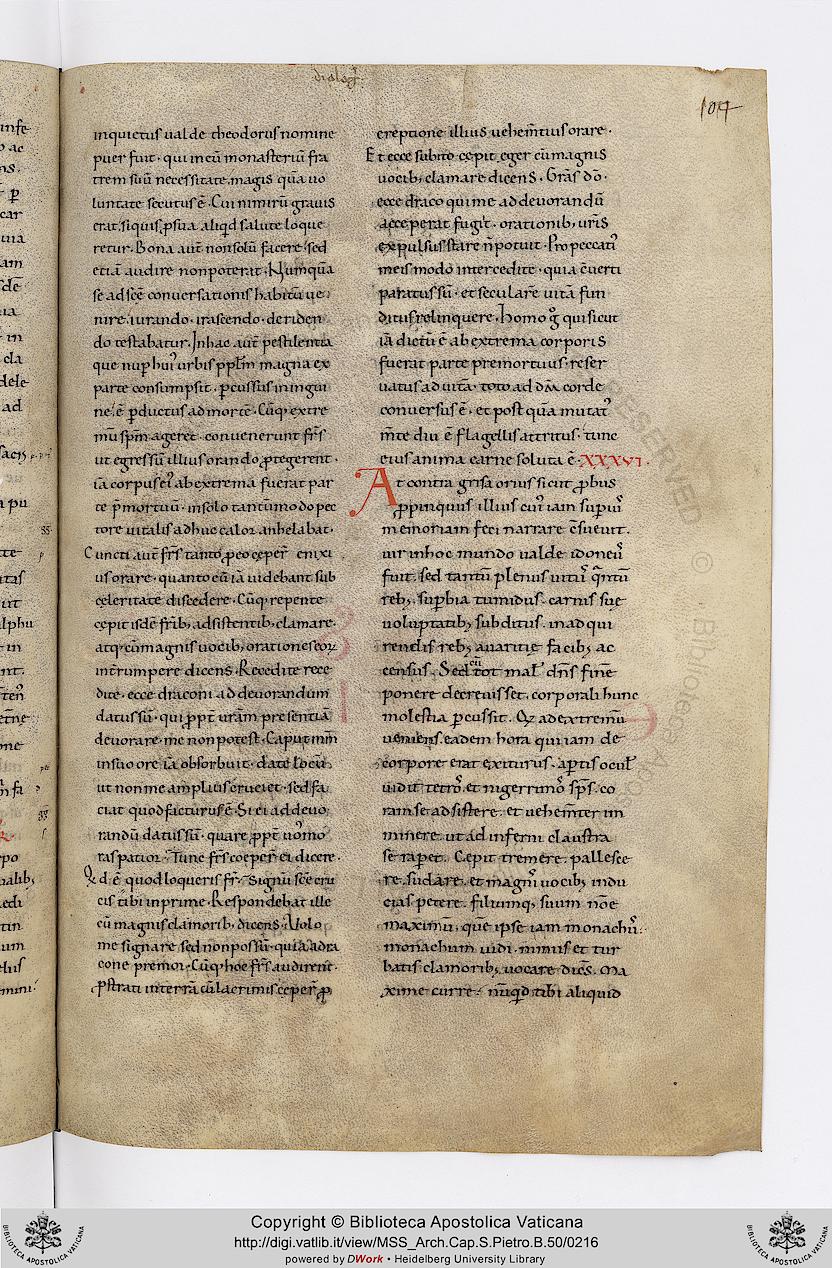 dialog̃
107
inquietus ualde theodorus nomine
puer fuit · qui in eū monasteriū fra
trem suū necessitate magis quā uo
luntate secutus ē · Cui nimirū grauis
erat si quis p̱ sua aliqd salute loque
retur · Bona aut̄ non solū facere · sed
etiā audire non poterat · Numquā
se ad scē conuersationis habitū ue
nire · iurando · irascendo · deriden
do testabatur · In hac aut̄ pestilentia
que nup̱ hui' urbis pp̄lm magna ex
parte consumpsit · p̱cussus in ingui
ne · ē p̱ductus ad mortē · Cūq; extre
mū spm̄ ageret · conuenerunt fr̄s
ut egressū illius orando p̱tegerent ·
iā corpus ei' ab extrema fuerat par
te p̄mortuū · in solo tantūmodo pec
tore uitalis adhuc calor anhelabat ·
Cuncti aut̄ fr̄s tanto p̱ eo ceper̄ enixi
us orare · quanto eū iā uidebant sub
celeritate discedere · Cūq; repente
cepit isdē fr̄ib; adsistentib; clamare ·
atq; cū magnis uocib; orationes eoꝝ
int̄rumpere dicens · Recedite rece
dite · ecce draconi ad deuorandum
datus sū · qui ppt̄ ur̄am presentiā
deuorare me non potest · Caput m̄m
in suo ore iā obsorbuit · date locū
ut non me amplius cruciet · sed fa
ciat quod facturus ē · Si ei ad deuo
randū datus sū · quare ppt̄ uos mo
ras patior · Tunc fr̄s coeper̄ ei dicere ·
Qd ē quod loqueris fr̄ · Signū scē cru
cis tibi inprime · Respondebat ille
cū magnis clamorib; dicens · Volo
me signare sed non possū · quia a dra
cone premor · Cūq; hoc fr̄s audirent ·
p̱strati in terrā cū lacrimis ceper̄ p̱
ereptione illius uehem̄tius orare ·
Et ecce subito cepit eger cū magnis
uocib; clamare dicens · Gr̄as dō ·
ecce draco qui me ad deuorandū
acceperat fugit · orationib; ur̄is
expulsus stare ñ potuit · Pro peccati'
meis modo intercedite · quia c̄uerti
paratus sū · et seculare uitā fun
ditus relinquere · Homo g̊ qui sicut
iā dictū ē ab extrema corporis
fuerat parte premortuus · reser
uatus ad uitā · toto ad dm̄ corde
conuersus ē · et post quā mutat'
m̄te diu ē flagellis attritus · tunc
eius anima carne soluta ē · XXXVI ·
At contra grisaorius sicut p̱bus
p̱pinquus illius cui' iam sup̱i'
memoriam feci narrare c̄sueuit ·
uir in hoc mundo ualde idone'
fuit · sed tantū plenus uitii' q̄ntū
reb; · sup̱bia tumidus · carnis sue
uoluptatib; subditus · in adqui
rendis reb; auaritie facib; ac
census · Sed cū tot mal' dn̄s finē
ponere decreuisset · corporali hunc
molestia p̱cussit · Q; ad extremū
ueniens · eadem hora qui iam de
corpore erat exiturus · ap̱tis ocul'
uidit tetros et nigerrimos sps̄ · co
ram se adsistere · et uehem̄ter im
minere · ut ad inferni claustra
se rap̱et · Cepit tremere · pallesce
re · sudare · et magni' uocib; indu
cias petere · filiumq; suum noīe
maximū · quē ipse iam monachū ·
monachum uidi · nimiis et tur
batis clamorib; uocare dicēs · Ma
xime curre · nūqd tibi aliquid
Copyright © Biblioteca Apostolica Vaticana
http://digi.vatlib.it/view/MSS_Arch.Cap.S.Pietro.B.50/0216
powered by DWork • Heidelberg University Library